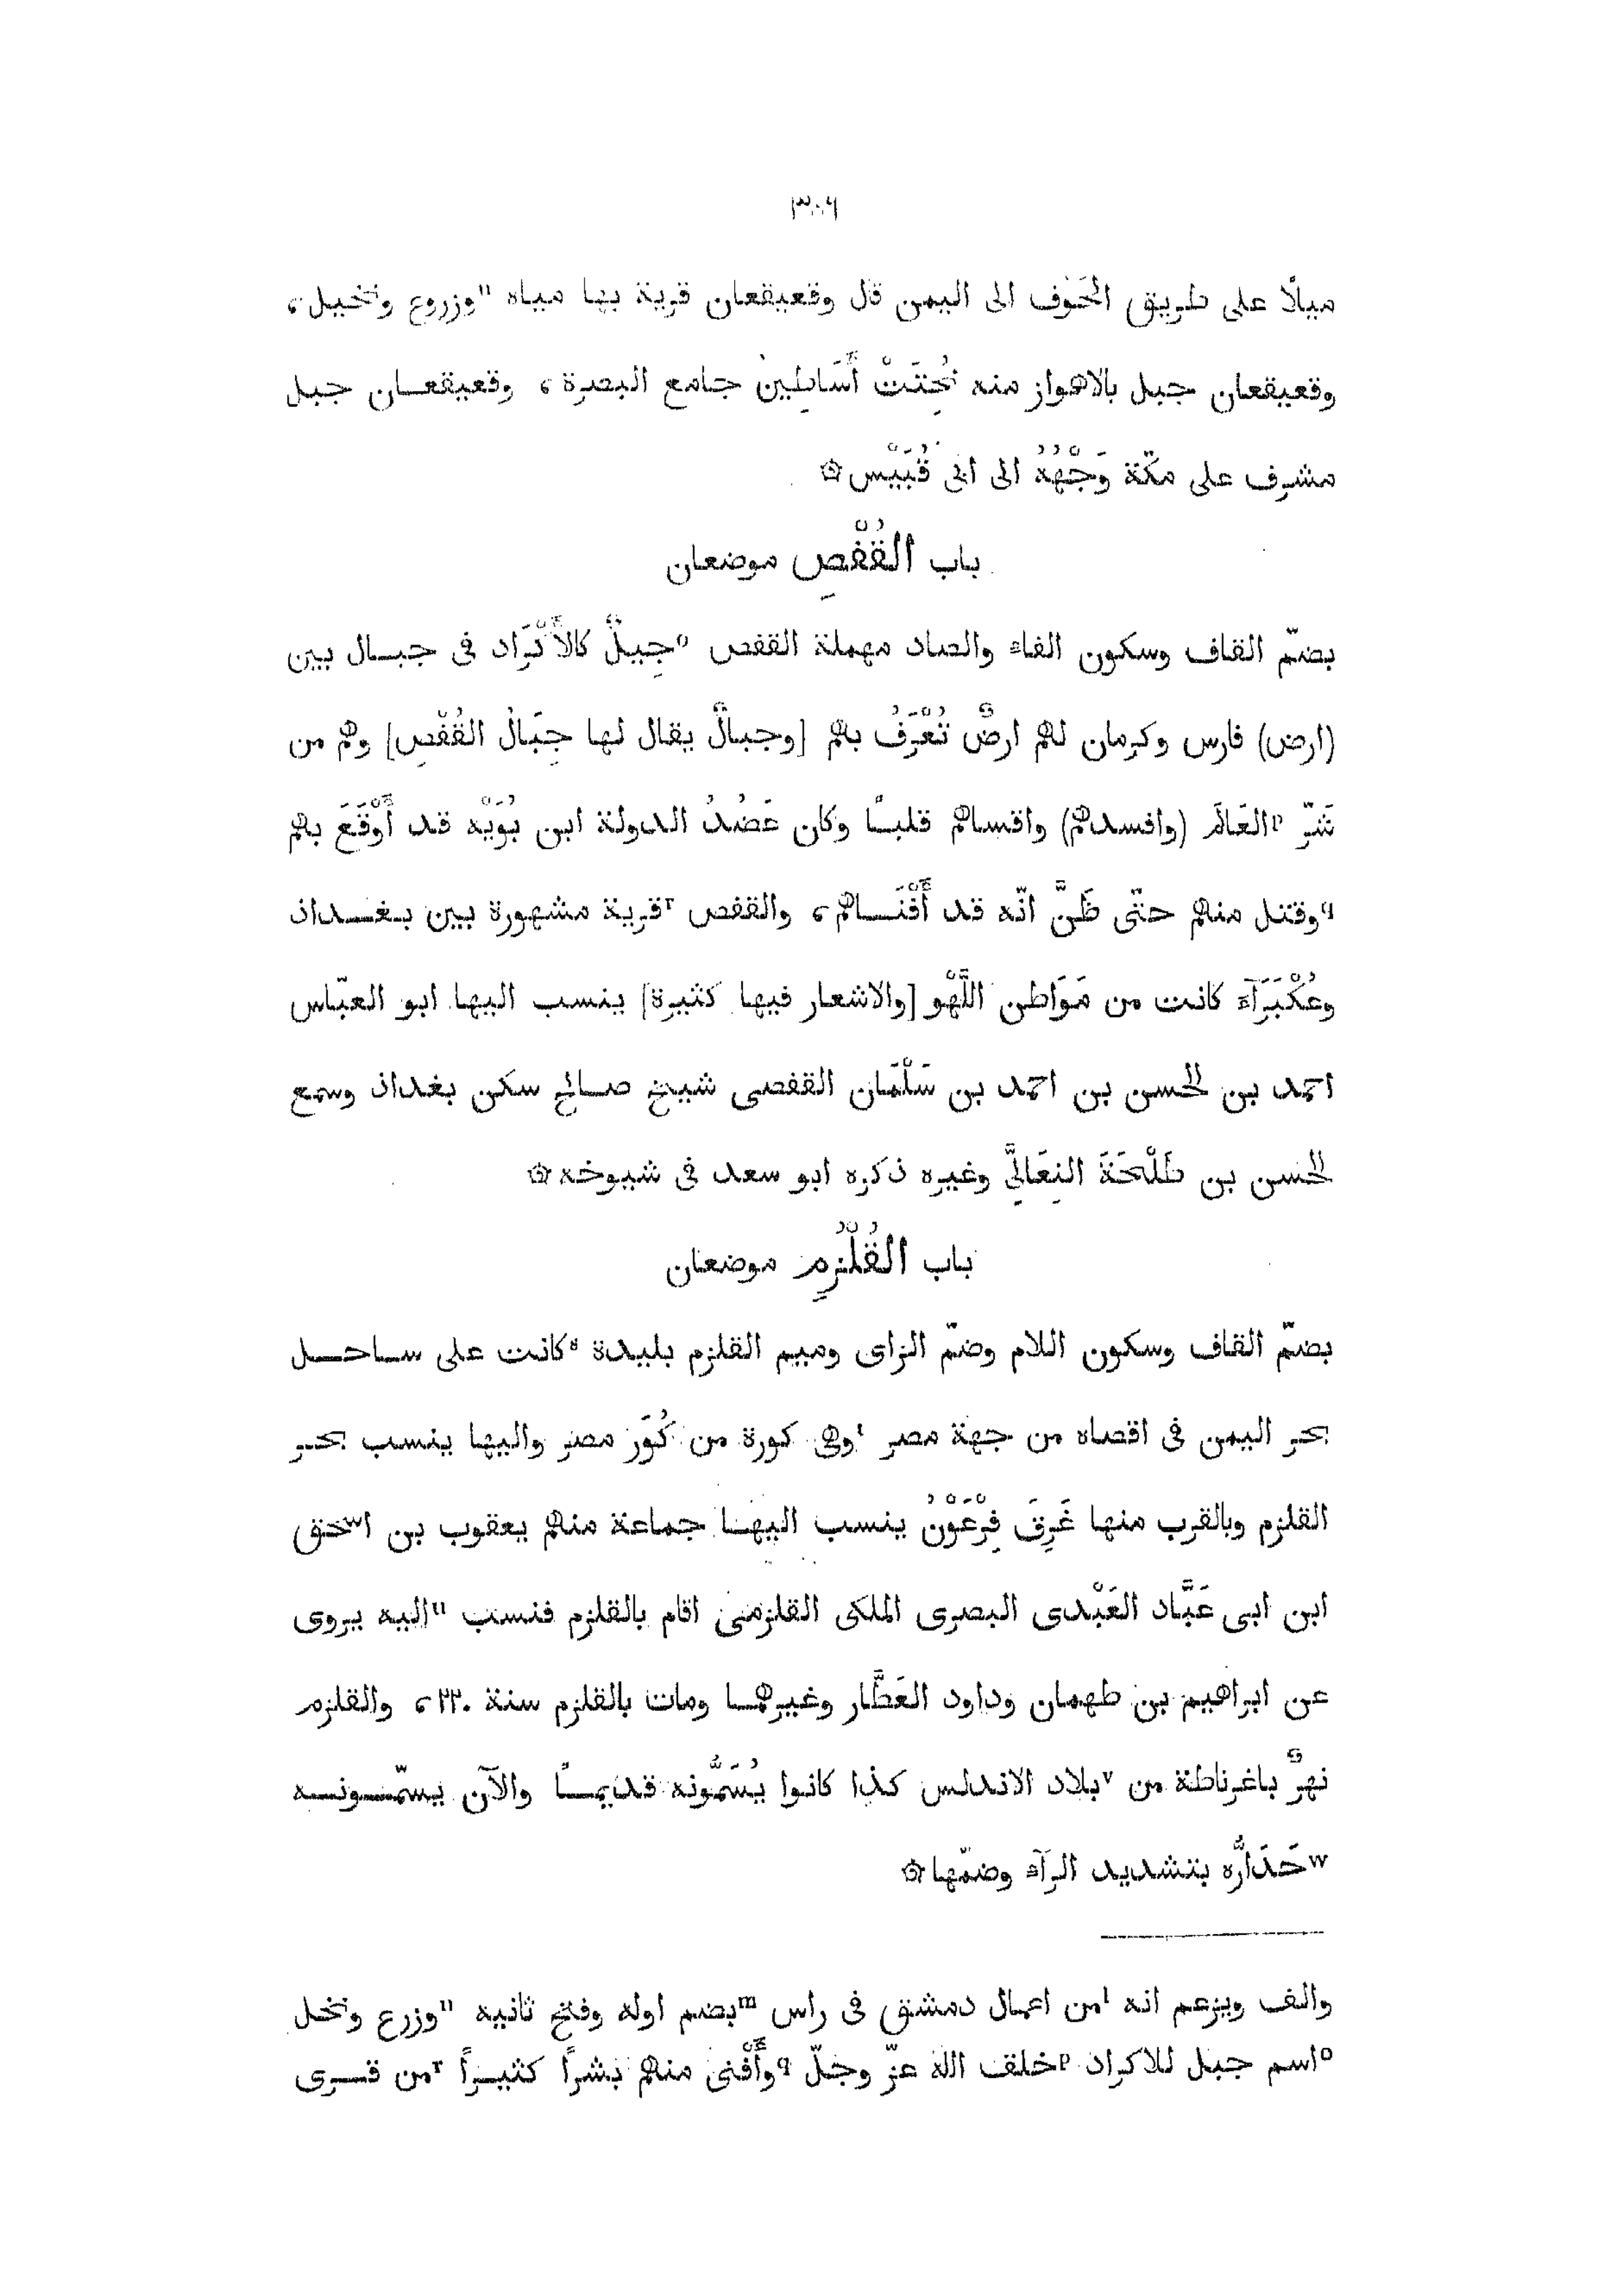 ٣٥٦
ميلًا على طريق الحَوْف الى اليمن قال وقعيقعان قرية بها مياه ⁿوزروع ونخيل،
وقعيقعان جبل بالاهواز منه نُحِتَتْ أَسَاطِينُ جامع البصرة، وقعيقعان جبل
مشرف على مكّة وَجْهُهُ الى ابى قُبَيْس ۞
باب القُفْصِ موضعان
بضمّ القاف وسكون الفاء والصاد مهملة القفص ᵒجِيلٌ كالأَكْرَاد فى جبال بين
(ارض) فارس وكرمان لهم ارضٌ تُعْرَفُ بهم [وجبالٌ يقال لها جِبَالُ القُفْصِ] وهم من
شَرّ ᵖالعَالَم (وافسدهم) واقساهم قلبًا وكان عَضُدُ الدولة ابن بُوَيْه قد أَوْقَعَ بهم
ᑫوقتل منهم حتّى ظَنَّ انّه قد أَفْنَاهم، والقفص ʳقرية مشهورة بين بغداذ
وعُكْبَرَآء كانت من مَوَاطن اللَّهْو [والاشعار فيها كثيرة] ينسب اليها ابو العبّاس
احمد بن الحسن بن احمد بن سَلْمَان القفصى شيخ صالح سكن بغداذ وسمع
الحسن بن طَلْحَةَ النِعَالِيَّ وغيره ذكره ابو سعد فى شيوخه ۞
باب القُلْزُمِ موضعان
بضمّ القاف وسكون اللام وضمّ الزاى وميم القلزم بليدة ˢكانت على ساحل
بحر اليمن فى اقصاه من جهة مصر ᵗوهى كورة من كُوَر مصر واليها ينسب بحر
القلزم وبالقرب منها غَرِقَ فِرْعَوْنُ ينسب اليها جماعة منهم يعقوب بن اسحق
ابن ابى عَبَّاد العَبْدى البصرى الملكى القلزمى اقام بالقلزم فنسب ᵘاليه يروى
عن ابراهيم بن طهمان وداود العَطَّار وغيرهما ومات بالقلزم سنة ٢٢٠، والقلزم
نهرٌ باغرناطة من ᵛبلاد الاندلس كذا كانوا يُسَمُّونه قديمًا والآن يسمّونه
ʷحَدَارُّه بتشديد الرآء وضمّها ۞
والف ويزعم انه ˡمن اعمال دمشق فى راس ᵐبضم اوله وفتح ثانيه ⁿوزرع ونخل
ᵒاسم جبل للاكراد ᵖخلق الله عزّ وجلّ ᑫوأَفْنى منهم بشرًا كثيرًا ʳمن قرى